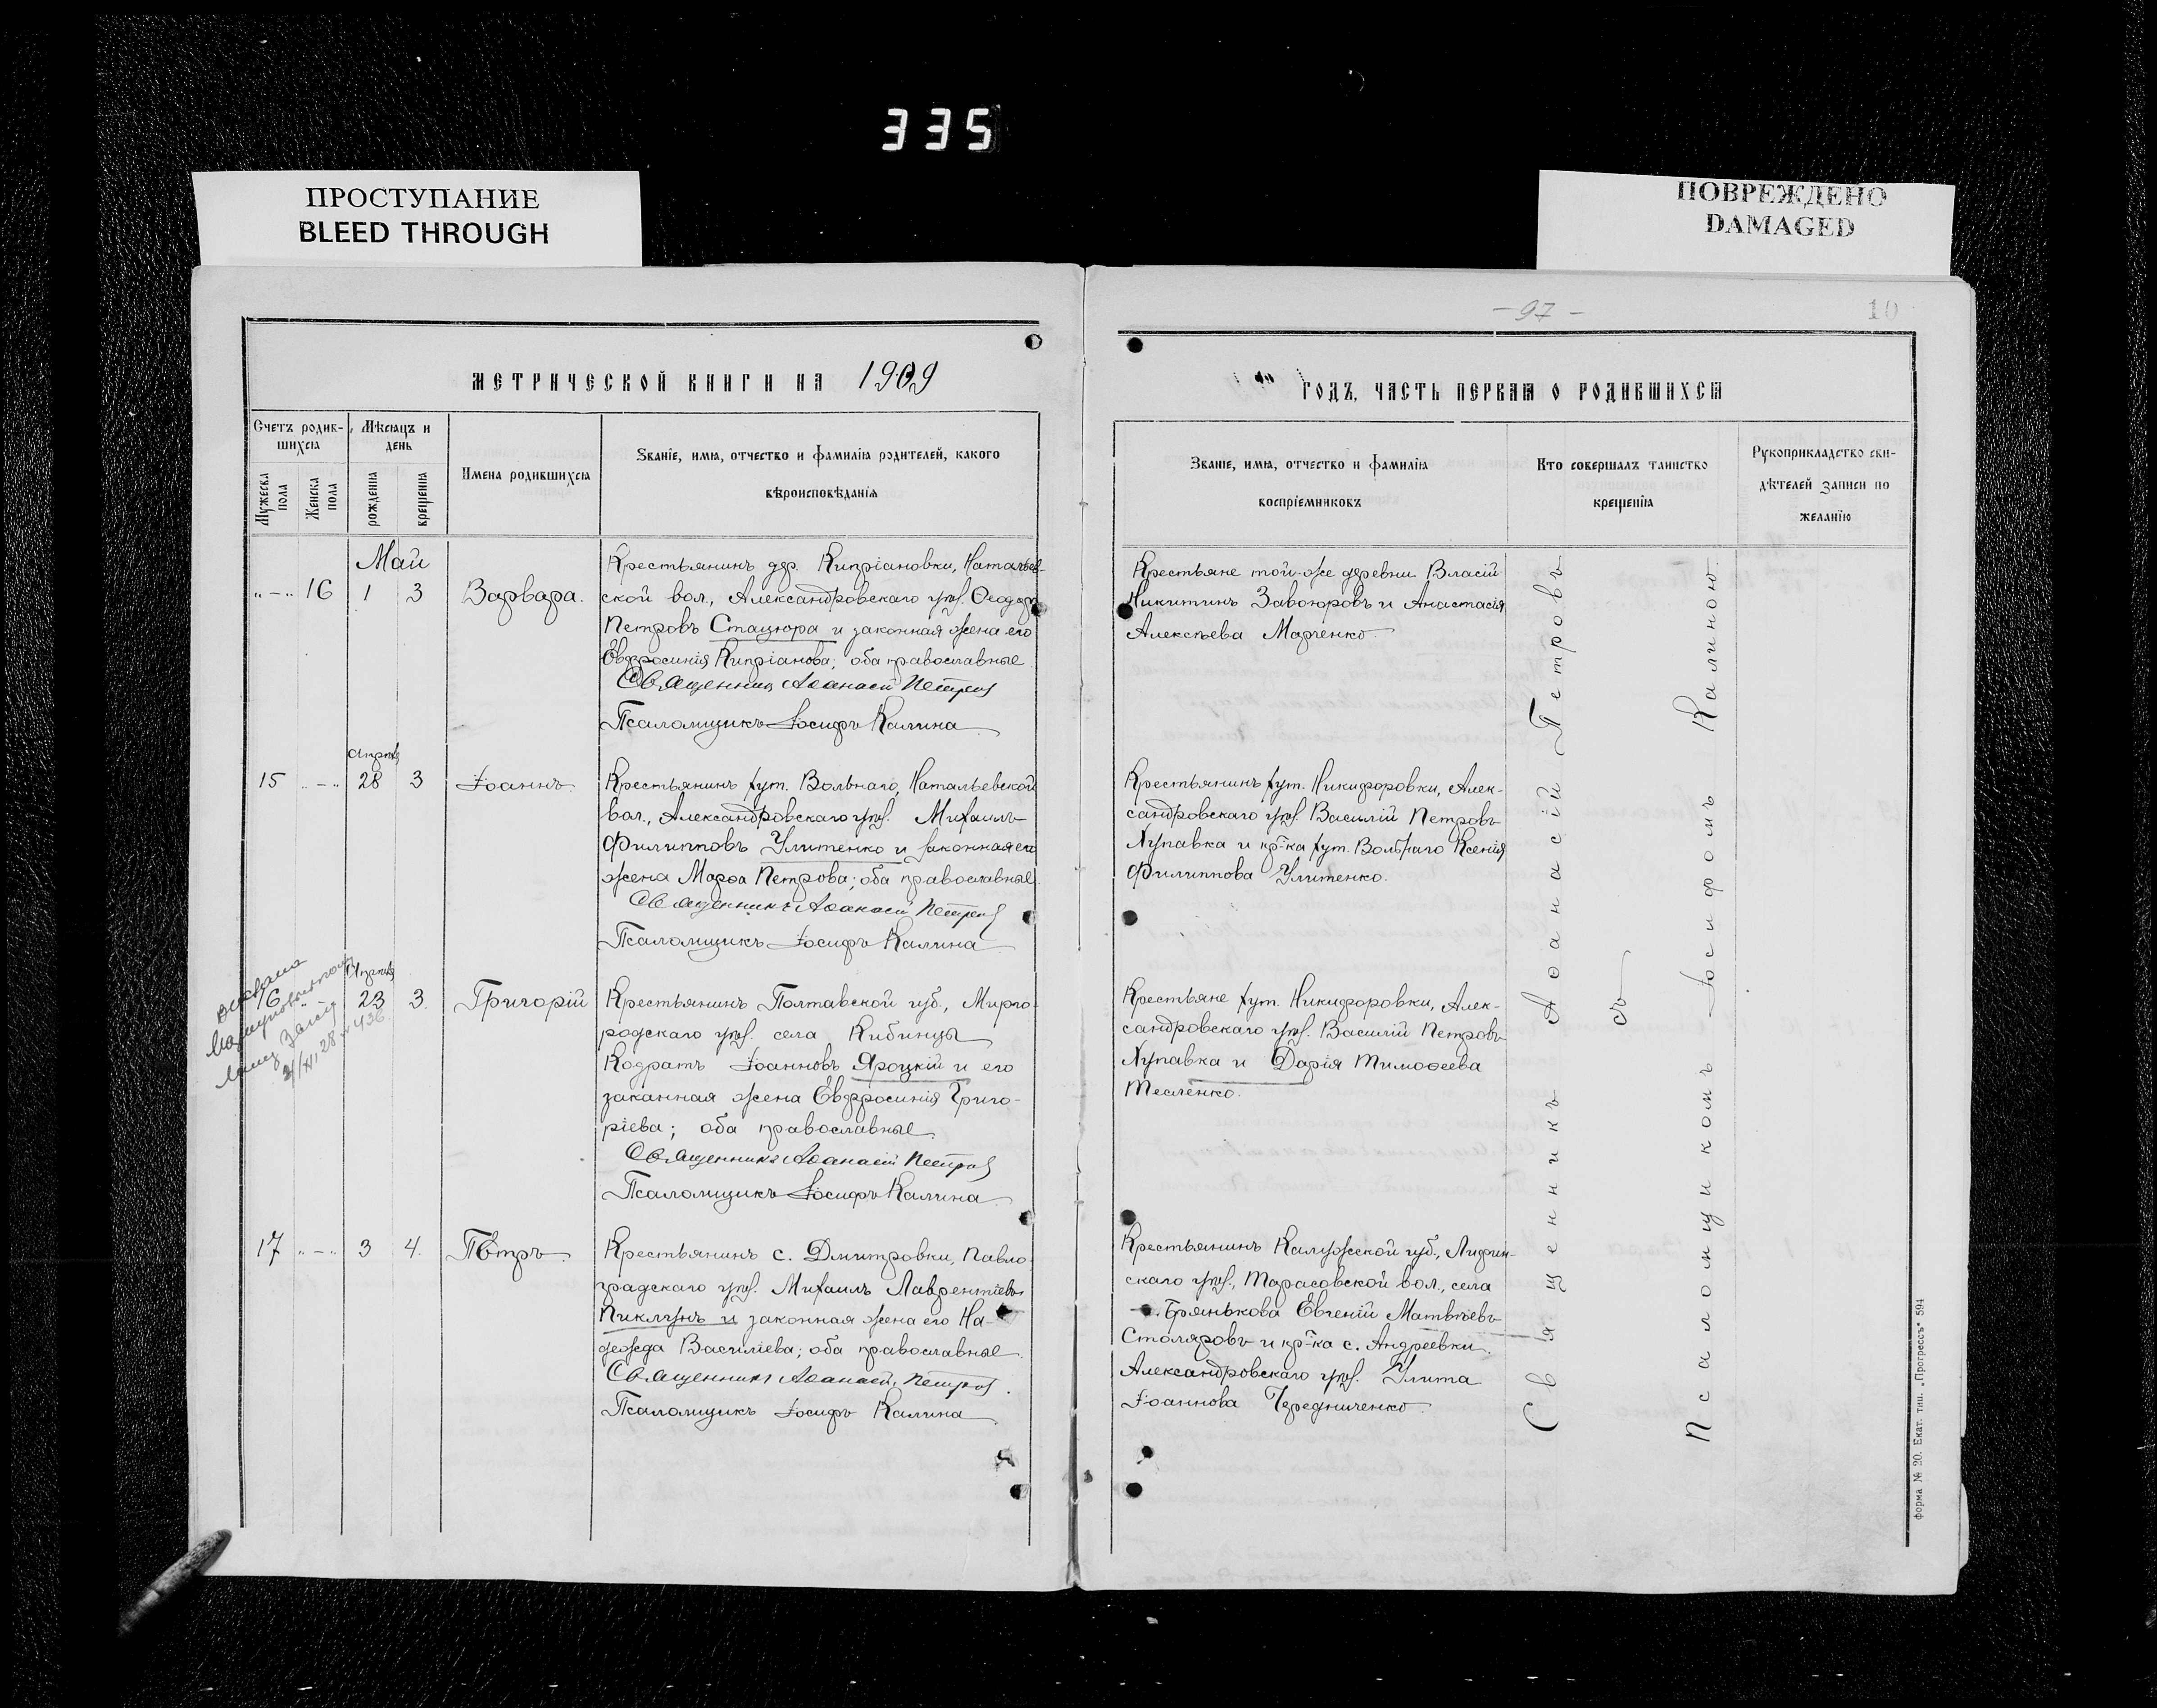 335
ПРОСТУПАНИЕ
BLEED THROUGH
ПОВРЕЖДЕНО
DAMAGED
МЕТРИЧЕСКОЙ КНИГИ НА 1909
Счетъ родив-
шихся
Мѣсяцъ и
день
Мужеска
пола
Женска
пола
рожденія
крещенія
Имена родившихся
Званіе, имя, отчество и фамилія родителей, какого
вѣроисповѣданія
Май
„ — „ 16 1 3 Варвара.
Крестьянинъ дер. Кипріановки, Натальев-
ской вол., Александровскаго уѣз. Ѳеодоръ
Петровъ Стацюра и законная жена его
Евфросинія Кипріанова; оба православные
Священникъ Аѳанасій Петровъ
Псаломщикъ Іосифъ Калина
Апрѣль
15 „ — „ 28 3 Іоаннъ.
Крестьянинъ хут. Вольнаго, Натальевской
вол., Александровскаго уѣз. Михаилъ
Филипповъ Улитенко и законная его
жена Марѳа Петрова; оба православные.
Священникъ Аѳанасій Петровъ
Псаломщикъ Іосифъ Калина
Апрѣль
16 „ 23 3. Григорій
Крестьянинъ Полтавской губ., Мирго-
родскаго уѣз. села Кибинцы
Кодратъ Іоанновъ Яроцкій и его
заканная жена Евфросинія Григо-
ріева; оба православные.
Священникъ Аѳанасій Петровъ
Псаломщикъ Іосифъ Калина
17 „ — „ 3 4. Петръ
Крестьянинъ с. Дмитровки, Павло-
градскаго уѣз. Михаилъ Лаврентіевъ
Пиклунъ и законная жена его На-
дежда Василіева; оба православные.
Священникъ Аѳанасій Петровъ.
Псаломщикъ Іосифъ Калина
— 97 —
10
ГОДЪ, ЧАСТЬ ПЕРВАЯ О РОДИВШИХСЯ
Званіе, имя, отчество и фамилія
воспріемниковъ
Кто совершалъ таинство
крещенія
Рукоприкладство сви-
дѣтелей записи по
желанію
Крестьяне той-же деревни Власій
Никитинъ Завоюровъ и Анастасія
Алексѣева Марченко.
Крестьянинъ хут. Никифоровки, Алек-
сандровскаго уѣз. Василій Петровъ
Лупавка и кр-ка хут. Вольнаго Ксенія
Филиппова Улитенко.
Крестьяне хут. Никифоровки, Алек-
сандровскаго уѣз. Василій Петровъ
Лупавка и Дарія Тимоѳеева
Тесленко.
Крестьянинъ Калужской губ., Лихвин-
скаго уѣз., Тарасовской вол., села
Брянькова Евгеній Матвѣевъ
Столяровъ и кр-ка с. Андреевки.
Александровскаго уѣз. Улита
Іоаннова Чередниченко.
Священникъ Аѳанасій Петровъ
съ
Псаломщикомъ Іосифомъ Калиною.
Форма № 20. Екат. тип. „Прогрессъ" 594